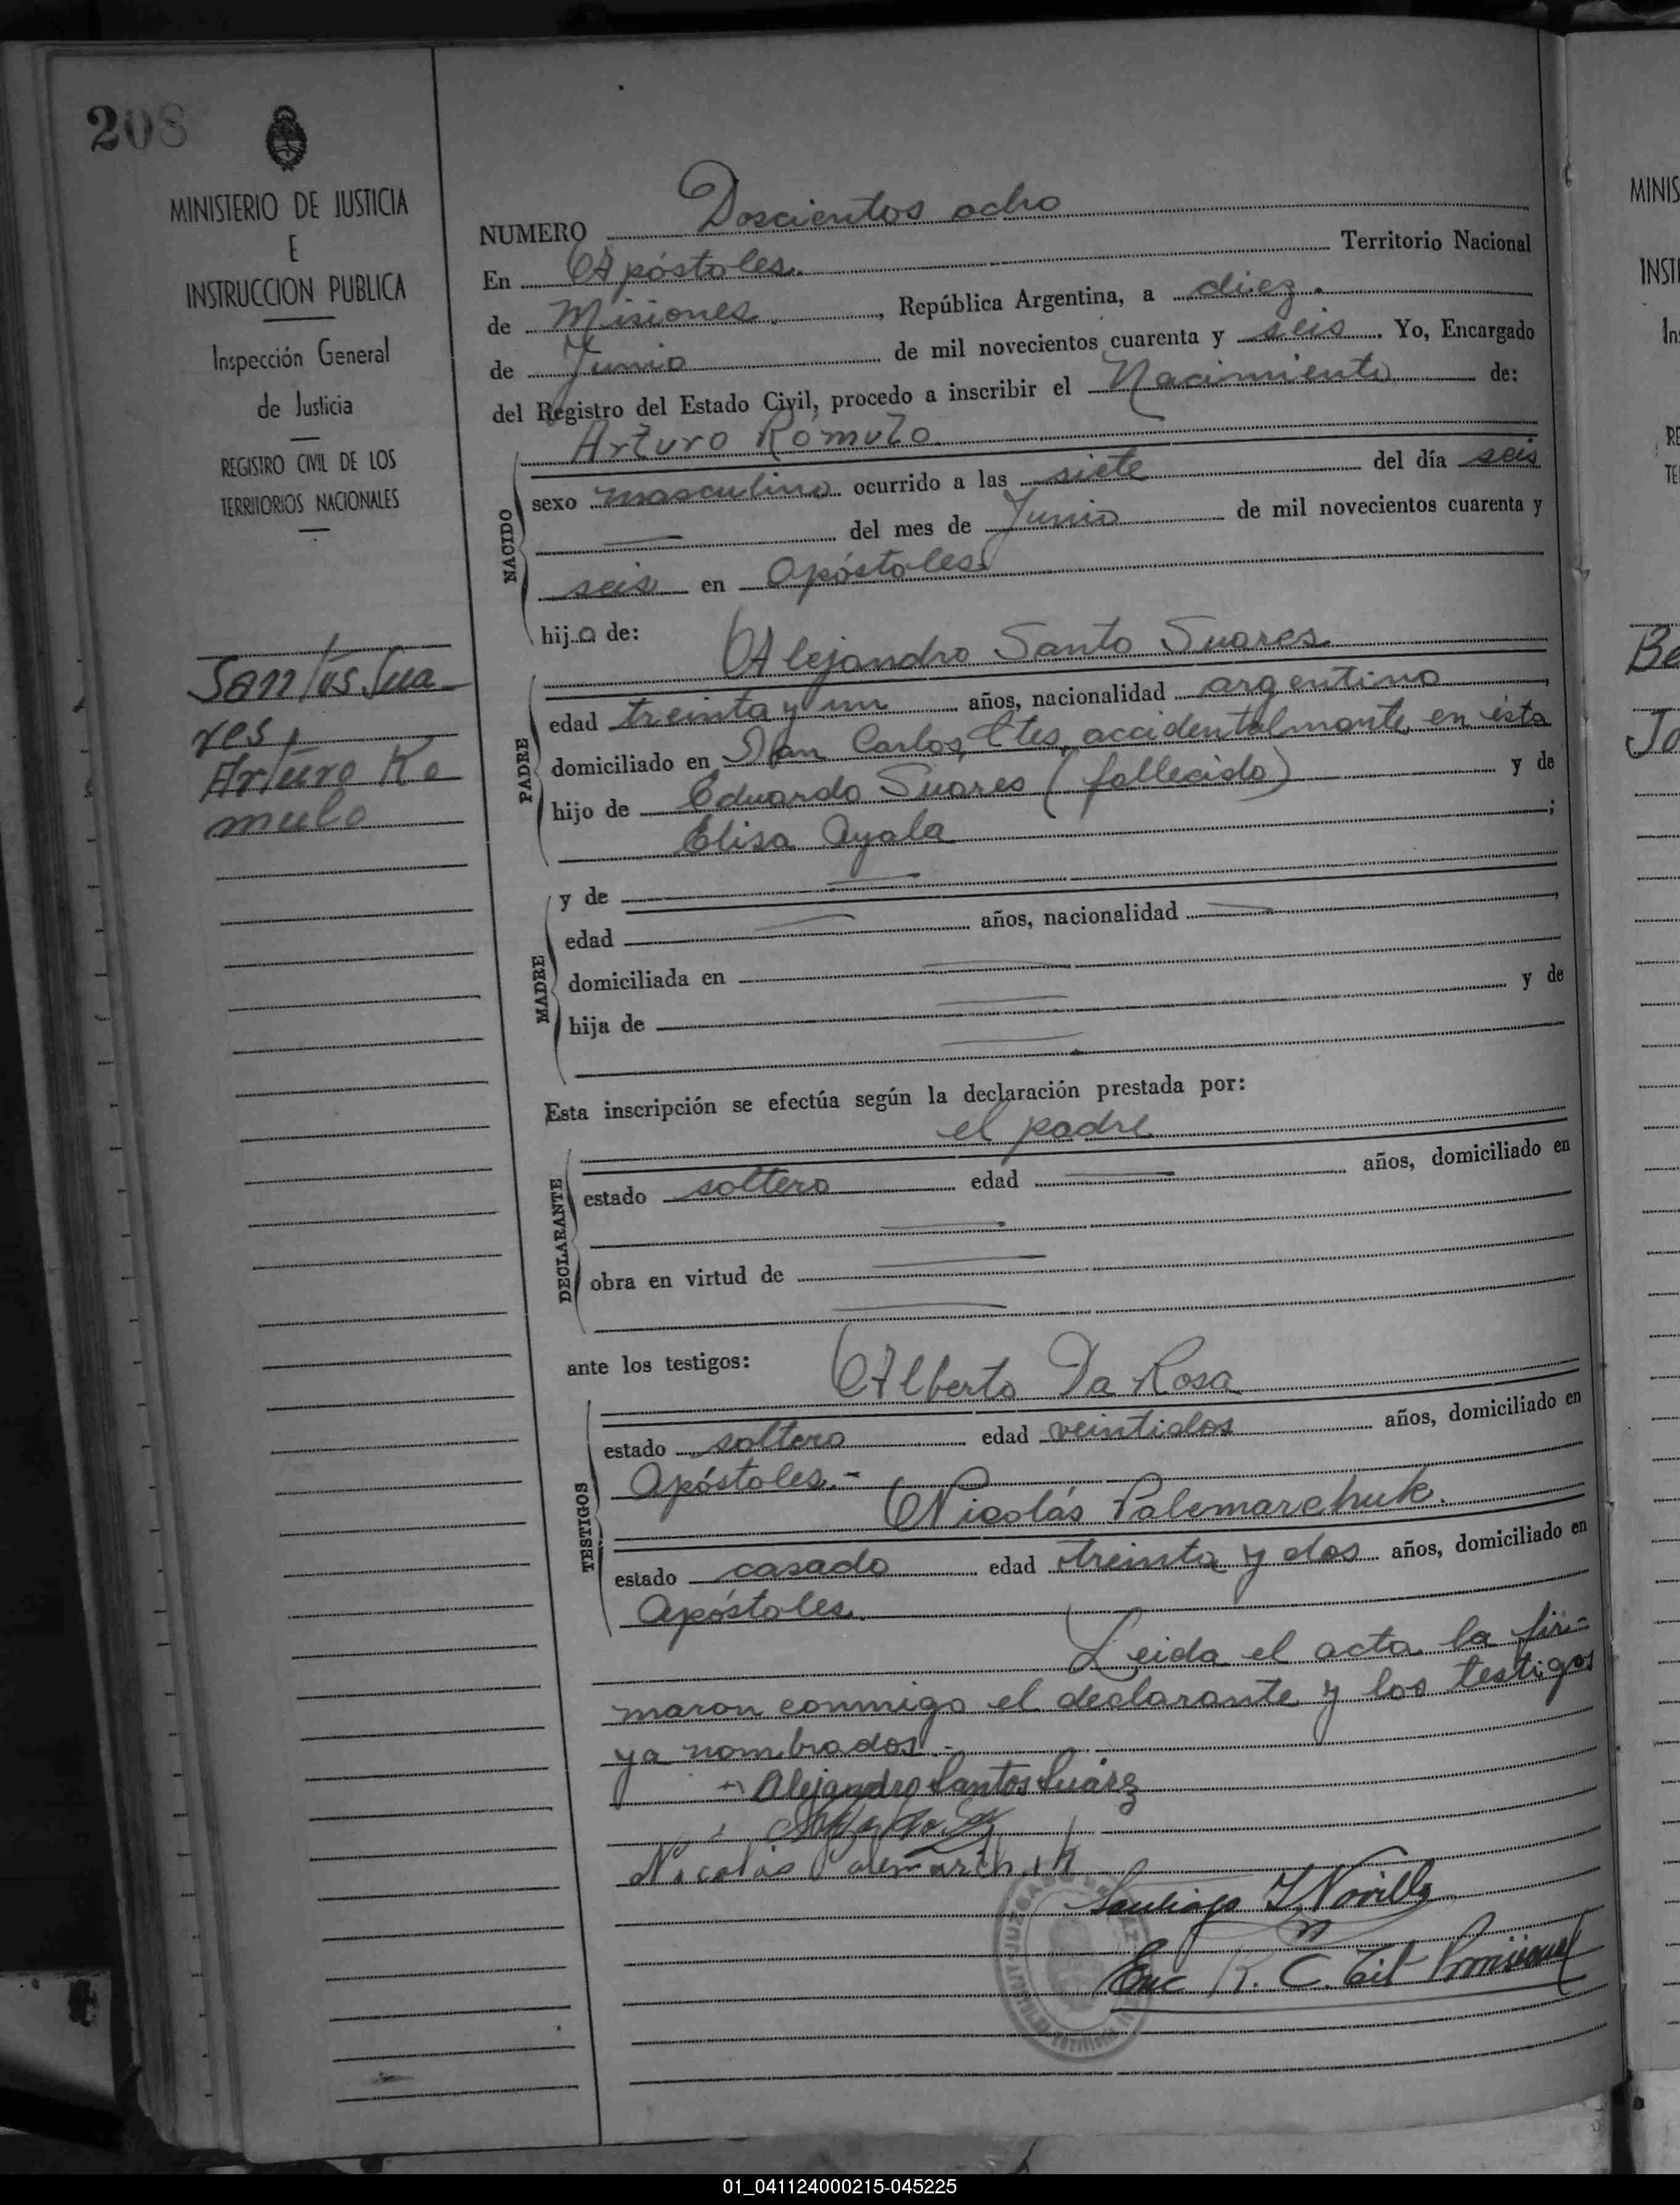 208
MINISTERIO DE JUSTICIA
E
INSTRUCCION PUBLICA
Inspección General
de Justicia
REGISTRO CIVIL DE LOS
TERRITORIOS NACIONALES
Santos Sua
res,
Arturo Ro
mulo
NUMERO Doscientos ocho
En Apóstoles. Territorio Nacional
de Misiones, República Argentina, a diez.
de Junio de mil novecientos cuarenta y seis Yo, Encargado
del Registro del Estado Civil, procedo a inscribir el Nacimiento de:
Arturo Rómulo
NACIDO
sexo masculino ocurrido a las siete del día seis
del mes de Junio de mil novecientos cuarenta y
seis en Apóstoles.
hijo de:
Alejandro Santo Suares
PADRE
edad treinta y un años, nacionalidad argentino,
domiciliado en San Carlos, Ctes, accidentalmente en ésta
hijo de Eduardo Suares (fallecido) y de
Elisa Ayala;
MADRE
y de
edad años, nacionalidad,
domiciliada en
hija de y de
Esta inscripción se efectúa según la declaración prestada por:
el padre
DECLARANTE
estado soltero edad años, domiciliado en
obra en virtud de
ante los testigos:
Alberto Da Rosa
TESTIGOS
estado soltero edad veintidos años, domiciliado en
Apóstoles.-
Nicolás Palemarchuk.
estado casado edad treinta y dos años, domiciliado en
Apóstoles.
Leida el acta la fir-
maron conmigo el declarante y los testigos
ya nombrados.-
Alejandro Santos Suárez
Nicolás Palemarchuk
Santiago Novillo
Enc R. C. Tit
MINIS
INSTI
In
RE
TE
Be
Jo
01_041124000215-045225